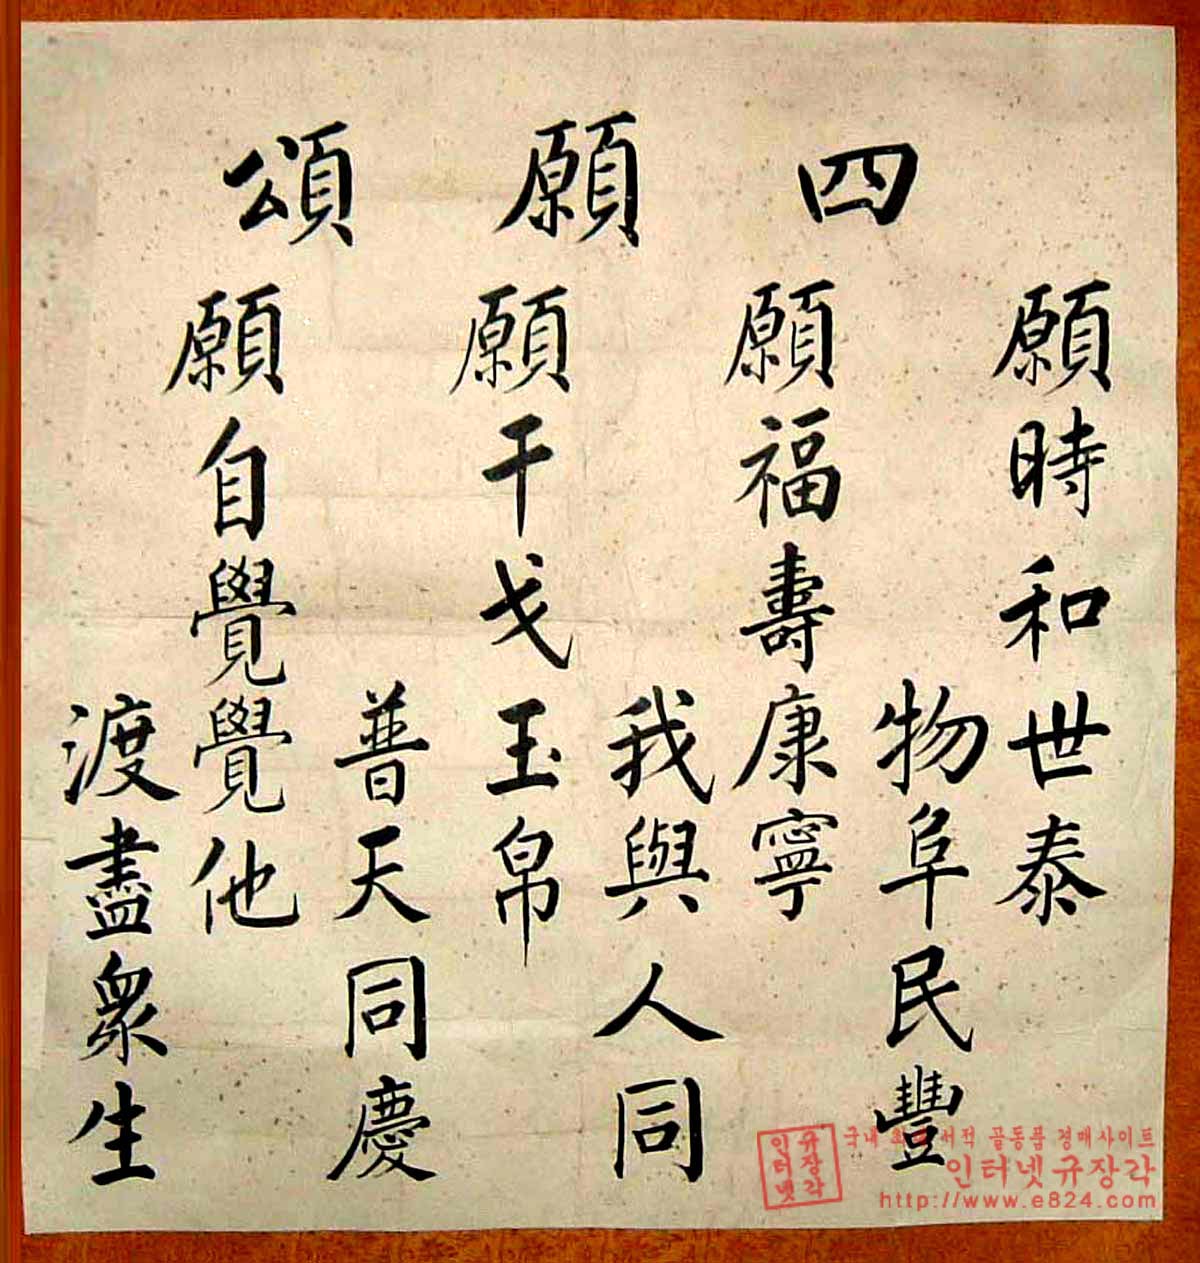 四願頌
願時和世泰
物阜民豐
願福壽康寧
我與人同
願干戈玉帛
普天同慶
願自覺覺他
渡盡衆生
인터넷 규장각
국내 서적 골동품 경매사이트
인터넷규장각
http://www.e824.com